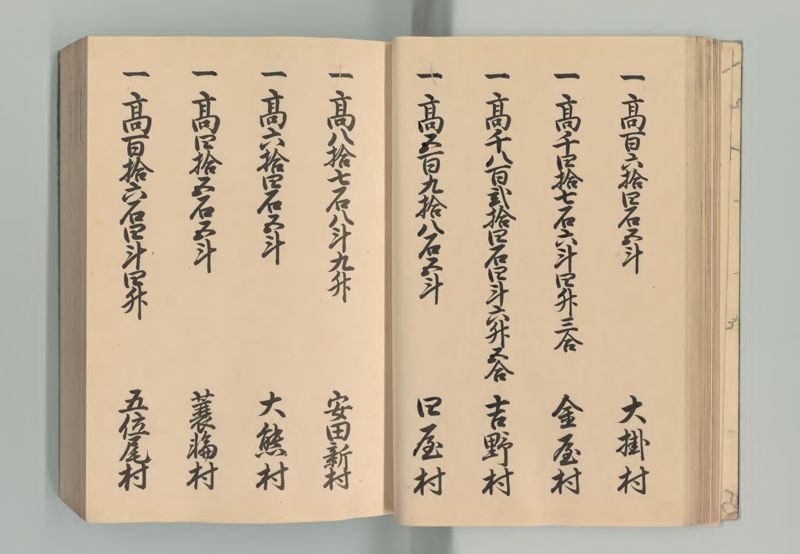 一高百六拾四石五斗 大掛村
一高千四拾七石六斗四升三合 金屋村
一高千八百弐拾四石四斗六升五合 吉野村
一高五百九拾八石五斗 田屋村
一高八拾七石八斗九升 安田新村
一高六拾四石五斗 大熊村
一高四拾五石五斗 蓑輪村
一高百拾六石四斗四升 五位尾村